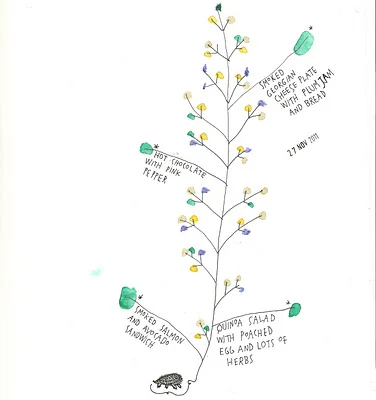 SMOKED
GEORGIAN
CHEESE PLATE
WITH PLUM JAM
AND BREAD
27 NOV 2011
HOT CHOCOLATE
WITH PINK
PEPPER
SMOKED SALMON
AND AVOCADO
SANDWICH
QUINOA SALAD
WITH POACHED
EGG AND LOTS OF
HERBS